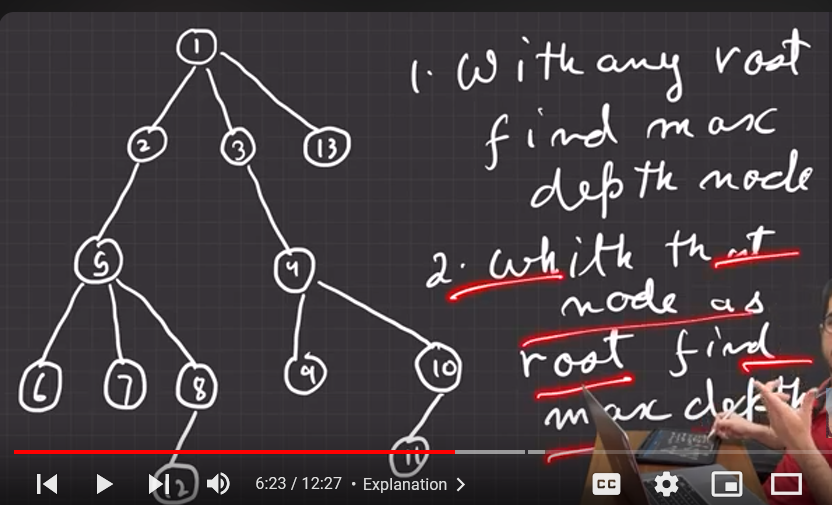 1
2
3
13
5
4
6
7
8
9
10
12
11
1. With any root
find max
depth node
2. whith that
node as
root find
max depth
6:23 / 12:27 • Explanation
CC